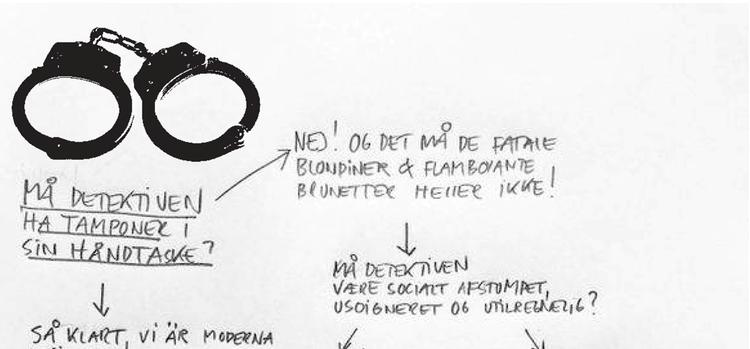 MÅ DETEKTIVEN
HA TAMPONER I
SIN HÅNDTASKE?
NEJ! OG DET MÅ DE FATALE
BLONDINER & FLAMBOYANTE
BRUNETTER HELLER IKKE!
MÅ DETEKTIVEN
VÆRE SOCIALT AFSTUMPET,
USOIGNERET OG UTILREGNELIG?
SÅ KLART, VI ÄR MODERNA